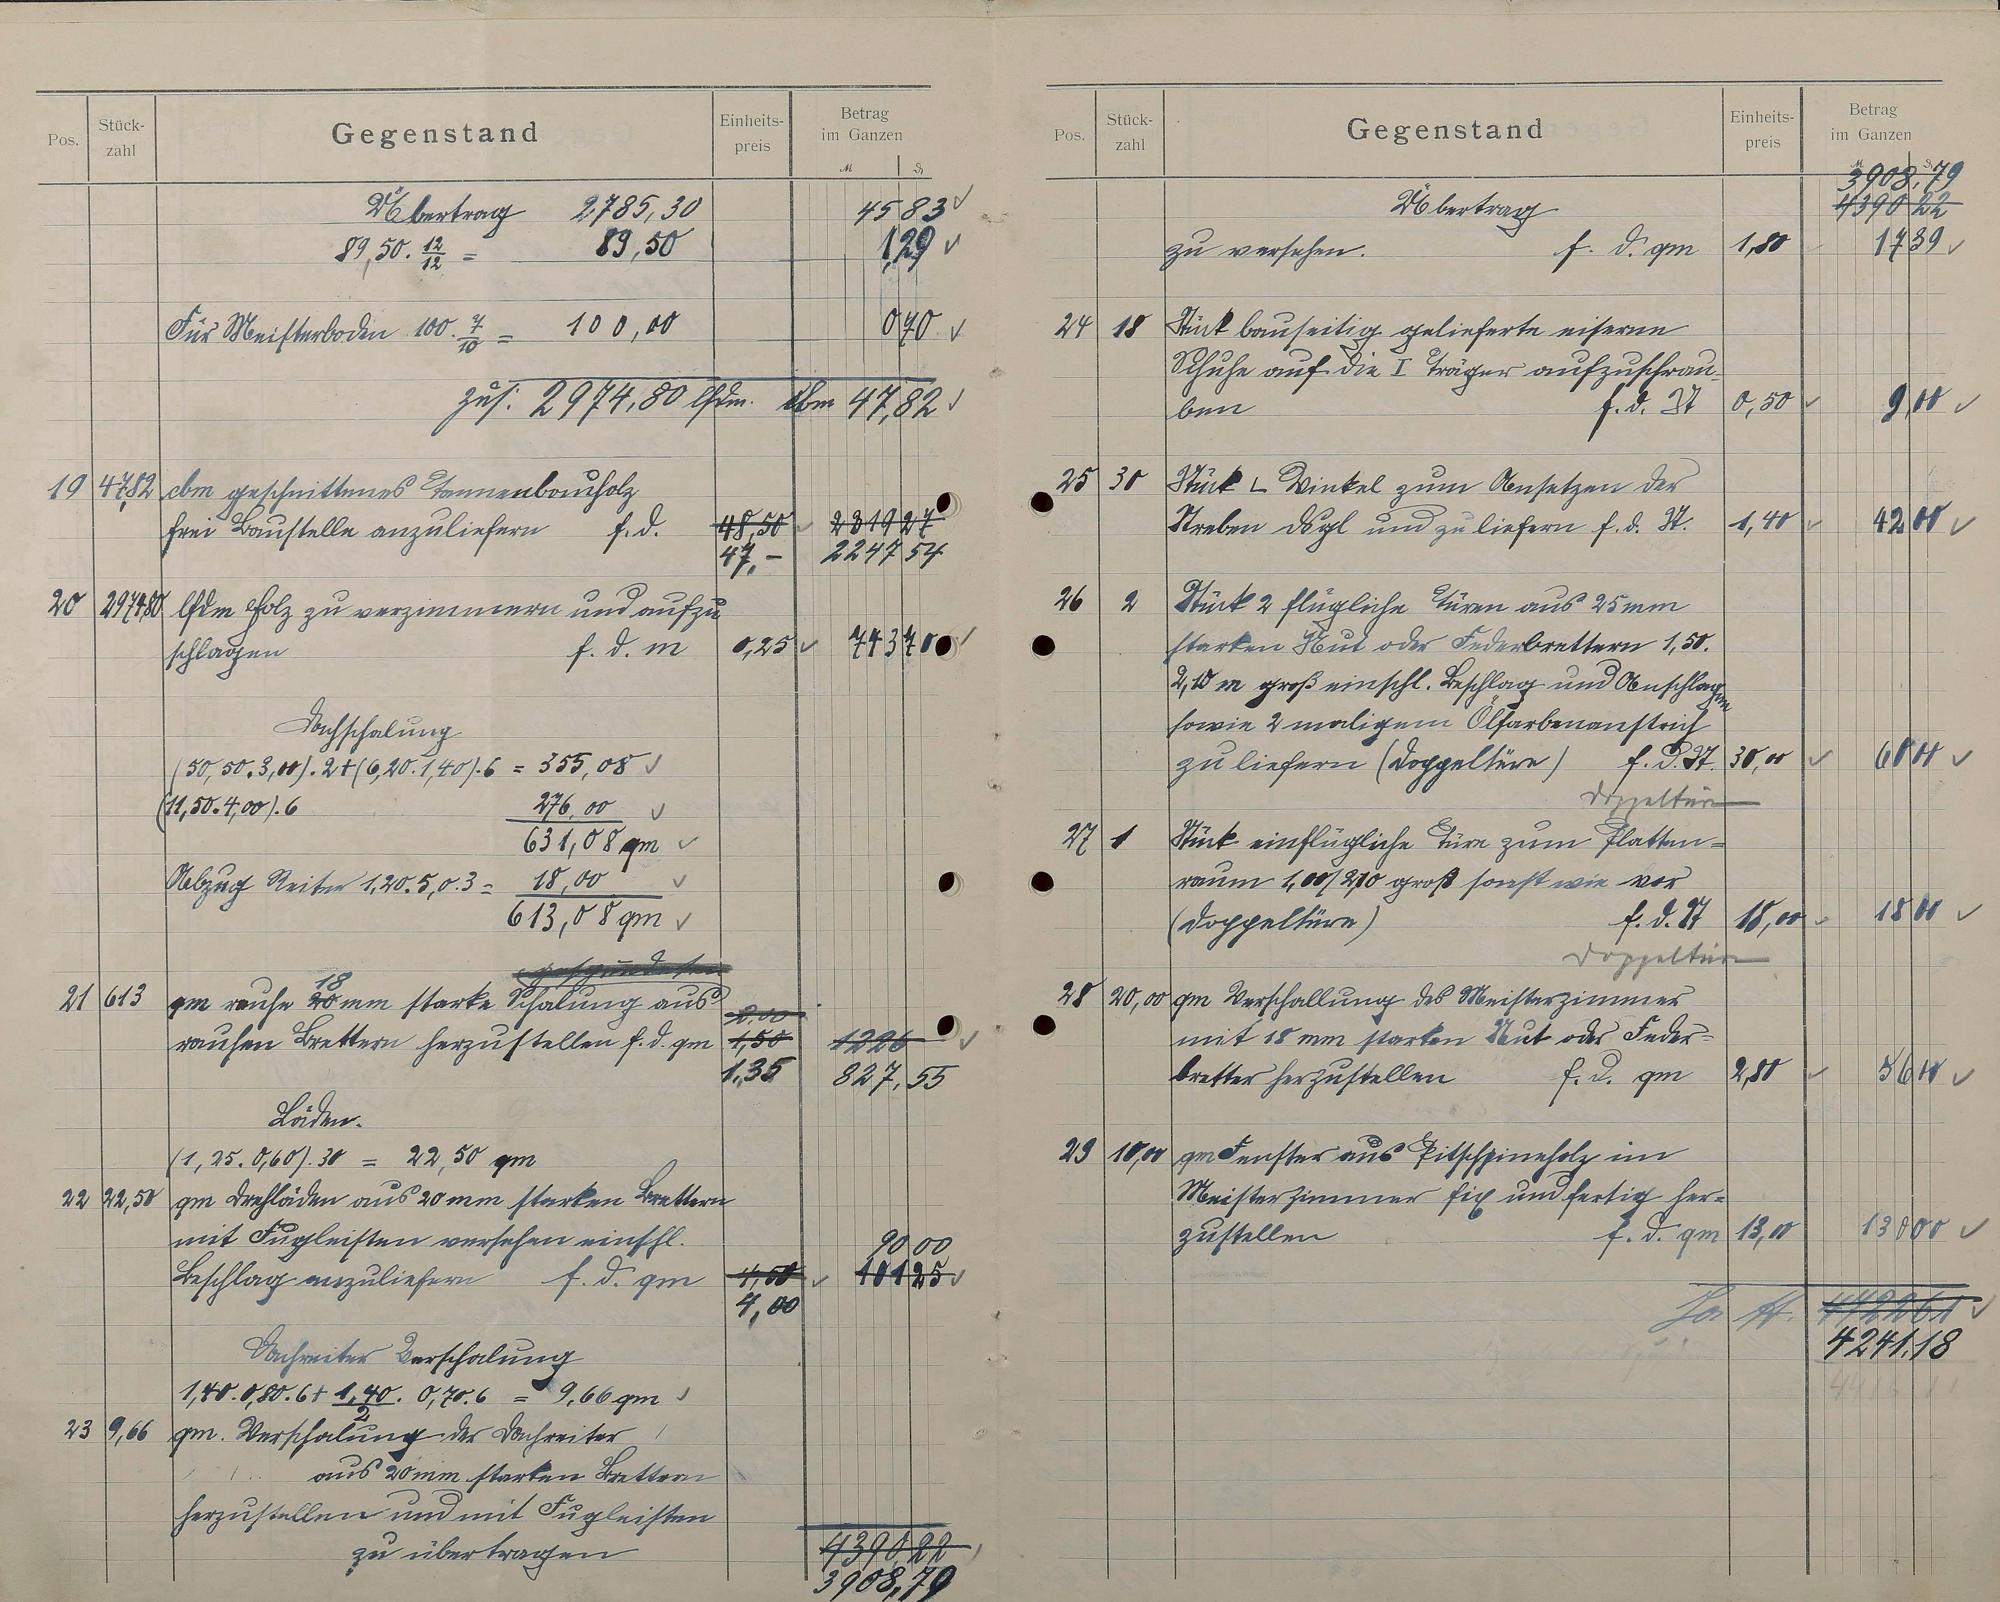 Pos.
Stück-
zahl
Gegenstand
Einheits-
preis
Betrag
im Ganzen
M
₰
Übertrag 2785,30 45 83
89,50 . 12/12 = 89,50 1,29
Für Meisterboden 100 . 7/10 = 100,00 0 70
zus. 2974,80 lfdm. cbm 47,82
19 47,82 cbm geschnittenes Tannenbauholz
frei Baustelle anzuliefern f. d. 48,50 2319 27
47,- 2247 54
20 2974,80 lfdm Holz zu verzimmern und aufzu
schlagen f. d. m 0,25 743 70
Dachschalung
(50,50 . 3,00) . 2 + (6,20 . 1,40) . 6 = 355,08
(11,50 . 4,00) . 6 276,00
631,08 qm
Abzug Reiter 1,20 . 5,0 . 3 = 18,00
613,08 qm
gespundeten
18
21 613 qm rauhe 20 mm starke Schalung aus 2,00
rauhen Brettern herzustellen f. d. qm 1,50 1226
1,35 827,55
Läden.
(1,25 . 0,60) . 30 = 22,50 qm
22 22,50 qm Drehläden aus 20 mm starken Brettern
mit Fugleisten versehen einschl. 90 00
Beschlag anzuliefern f. d. qm 4,50 101 25
4,00
Dachreiter Verschalung
1,40 . 0,80 . 6 + 1,40/2 . 0,70 . 6 = 9,66 qm
23 9,66 qm. Verschalung der Dachreiter
aus 20 mm starken Brettern
herzustellen und mit Fugleisten
zu übertragen 4390,22
3908,79
Pos.
Stück-
zahl
Gegenstand
Einheits-
preis
Betrag
im Ganzen
M
₰
3908,79
Übertrag 4390 22
zu versehen. f. d. qm 1,80 17 39
24 18 Stück bauseitig gelieferte eiserne
Schuhe auf die I Träger aufzuschrau-
ben f. d. St 0,50 9,00
25 30 Stück L Winkel zum Ansetzen der
Streben dsgl und zu liefern f. d. St. 1,40 42 00
26 2 Stück 2 flügliche Türen aus 25 mm
starken Nut oder Federbrettern 1,50.
2,10 m groß einschl. Beschlag und Anschlagen
sowie 2 maligem Ölfarbenanstrich
zu liefern (Doppeltüre) f. d. St. 30,00 60 00
Doppeltüre
27 1 Stück einflügliche Türe zum Platten=
raum 1,00/2,10 groß sonst wie vor
(Doppeltüre) f. d. St 18,00 18 00
Doppeltüre
28 20,00 qm Verschallung des Meisterzimmer
mit 18 mm starken Nut oder Feder=
bretter herzustellen f. d. qm 2,80 56 00
29 10,00 qm Fenster aus Pitschpineholz im
Meisterzimmer fix und fertig her=
zustellen f. d. qm 13,00 130 00
Sa M. 4722 61
4241,18